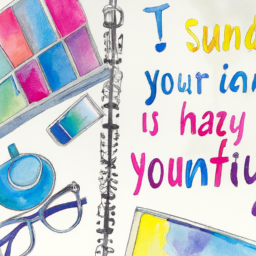 I sund
your ian
is hazy
younfiy